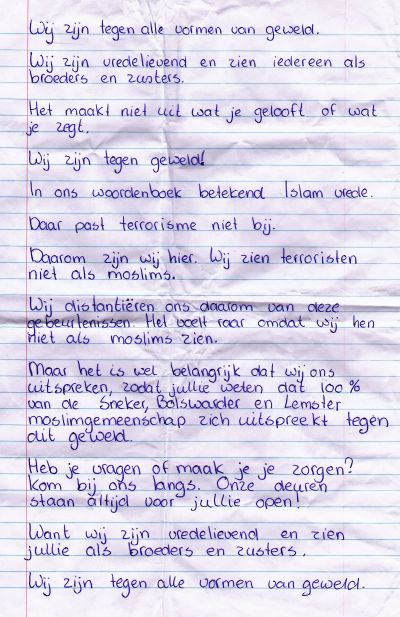 Wij zijn tegen alle vormen van geweld.
Wij zijn vredelievend en zien iedereen als
broeders en zusters.
Het maakt niet uit wat je gelooft of wat
je zegt.
Wij zijn tegen geweld!
In ons woordenboek betekend Islam vrede.
Daar past terrorisme niet bij.
Daarom zijn wij hier. Wij zien terroristen
niet als moslims.
Wij distantiëren ons daarom van deze
gebeurtenissen. Het voelt raar omdat wij hen
niet als moslims zien.
Maar het is wel belangrijk dat wij ons
uitspreken, zodat jullie weten dat 100%
van de Sneker, Bolswarder en Lemster
moslimgemeenschap zich uitspreekt tegen
dit geweld.
Heb je vragen of maak je je zorgen?
Kom bij ons langs. Onze deuren
staan altijd voor jullie open!
Want wij zijn vredelievend en zien
jullie als broeders en zusters.
Wij zijn tegen alle vormen van geweld.